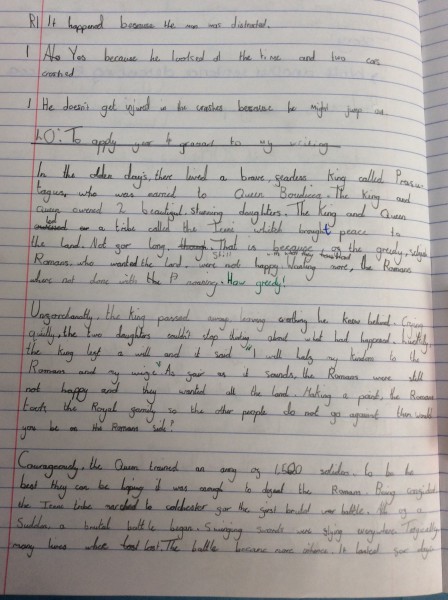 R1 It happened because the man was distracted.
1 Yes because he looked at the time and two cars
crashed.
1 He doesn't get injured in the crashes because he might jump out.
LO: To apply year 4 grammar to my writing
In the olden days, there lived a brave, fearless King called Prasu-
tagus, who was married to Queen Boudicca. The King and
Queen owned 2 beautiful, stunning daughters. The King and Queen
led a tribe called the Iceni which brought peace to
the land. Not for long, though. That is because of the greedy, selfish
Romans, who wanted the land, were not happy. Wanting more, the Romans
where not done with the P. How greedy!
Unforchanatly, the King passed away leaving everything he knew behind. Crying
quitly, the two daughters couldn't stop thinking about what had happened.
the King left a will and it said "I will half my kindom to the
Romans and my wife." As fair as it sounds, the Romans were still
not happy and they wanted all the land. Making a point, the Romans
the Royal family so the other people do not go against them would
you be on the Romans side?
Courageously, the Queen trained an army of 1,500 soldiers to be the
best they can be hoping it was enough to defeat the Romans. Being
the Iceni tribe marched to colchester for the first brutal battle. All of a
Sudden, a brutal battle began. Swinging swords were flying everywhere. Tragically
many lives where lost. The battle became more intence. It looked